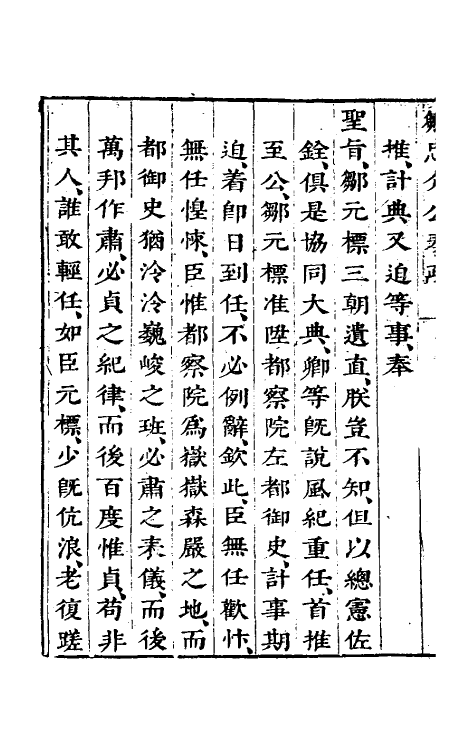 鄒忠介公奏疏
推、計典又迫等事、奉
聖旨、鄒元標三朝遺直、朕豈不知、但以總憲佐
銓、俱是協同大典、卿等旣說風紀重任、首推
至公、鄒元標准陞都察院左都御史、計事期
迫、着卽日到任、不必例辭、欽此、臣無任歡忭、
無任惶悚、臣惟都察院爲嶽嶽森嚴之地、而
都御史猶泠泠巍峻之班、必肅之表儀、而後
萬邦作肅、必貞之紀律、而後百度惟貞、苟非
其人、誰敢輕任、如臣元標、少旣伉浪、老復蹉